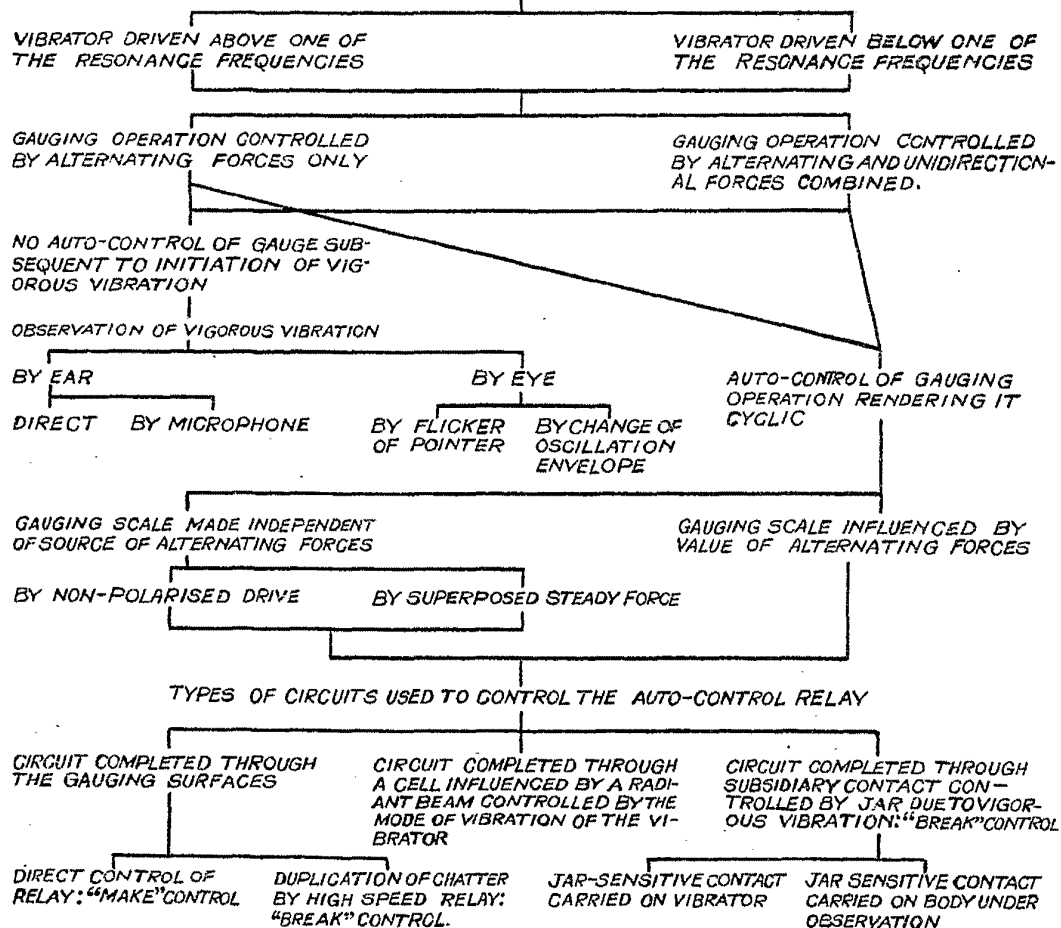 VIBRATOR DRIVEN ABOVE ONE OF
THE RESONANCE FREQUENCIES
VIBRATOR DRIVEN BELOW ONE OF
THE RESONANCE FREQUENCIES
GAUGING OPERATION CONTROLLED
BY ALTERNATING FORCES ONLY
GAUGING OPERATION CONTROLLED
BY ALTERNATING AND UNIDIRECTION-
AL FORCES COMBINED.
NO AUTO-CONTROL OF GAUGE SUB-
SEQUENT TO INITIATION OF VIG-
OROUS VIBRATION
OBSERVATION OF VIGOROUS VIBRATION
BY EAR
BY EYE
AUTO-CONTROL OF GAUGING
OPERATION RENDERING IT
CYCLIC
DIRECT
BY MICROPHONE
BY FLICKER
OF POINTER
BY CHANGE OF
OSCILLATION
ENVELOPE
GAUGING SCALE MADE INDEPENDENT
OF SOURCE OF ALTERNATING FORCES
GAUGING SCALE INFLUENCED BY
VALUE OF ALTERNATING FORCES
BY NON-POLARISED DRIVE
BY SUPERPOSED STEADY FORCE
TYPES OF CIRCUITS USED TO CONTROL THE AUTO-CONTROL RELAY
CIRCUIT COMPLETED THROUGH
THE GAUGING SURFACES
CIRCUIT COMPLETED THROUGH
A CELL INFLUENCED BY A RADI-
ANT BEAM CONTROLLED BY THE
MODE OF VIBRATION OF THE VI-
BRATOR
CIRCUIT COMPLETED THROUGH
SUBSIDIARY CONTACT CON-
TROLLED BY JAR DUE TO VIGOR-
OUS VIBRATION: "BREAK" CONTROL
DIRECT CONTROL OF
RELAY: "MAKE" CONTROL
DUPLICATION OF CHATTER
BY HIGH SPEED RELAY:
"BREAK" CONTROL.
JAR-SENSITIVE CONTACT
CARRIED ON VIBRATOR
JAR SENSITIVE CONTACT
CARRIED ON BODY UNDER
OBSERVATION